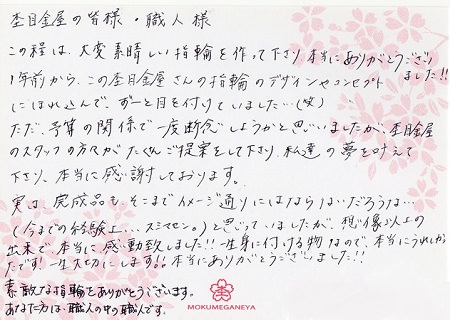 杢目金屋の皆様・職人様
この程は、大変素晴しい指輪を作って下さり本当にありがとうござい
ました!!
1年前から、この杢目金屋さんの指輪のデザインやコンセプト
にほれ込んで、ずーっと目を付けていました…(笑)
ただ、予算の関係で一度断念しようかと思いましたが、杢目金屋
のスタッフの方々がたくさんご提案をして下さり、私達の夢を叶えて
下さり、本当に感謝しております。
実は、完成品も、そこまでイメージ通りにはならないだろうな…
(今までの経験上...スミマセン。)と思っていましたが、想像以上の
出来で、本当に感動致しました!!一生身に付ける物なので、本当にうれしかっ
たです!一生大切にします!!本当にありがとうございました!!
素敵な指輪をありがとうございます。
あなた方は、職人の中の職人です。
MOKUMEGANEYA